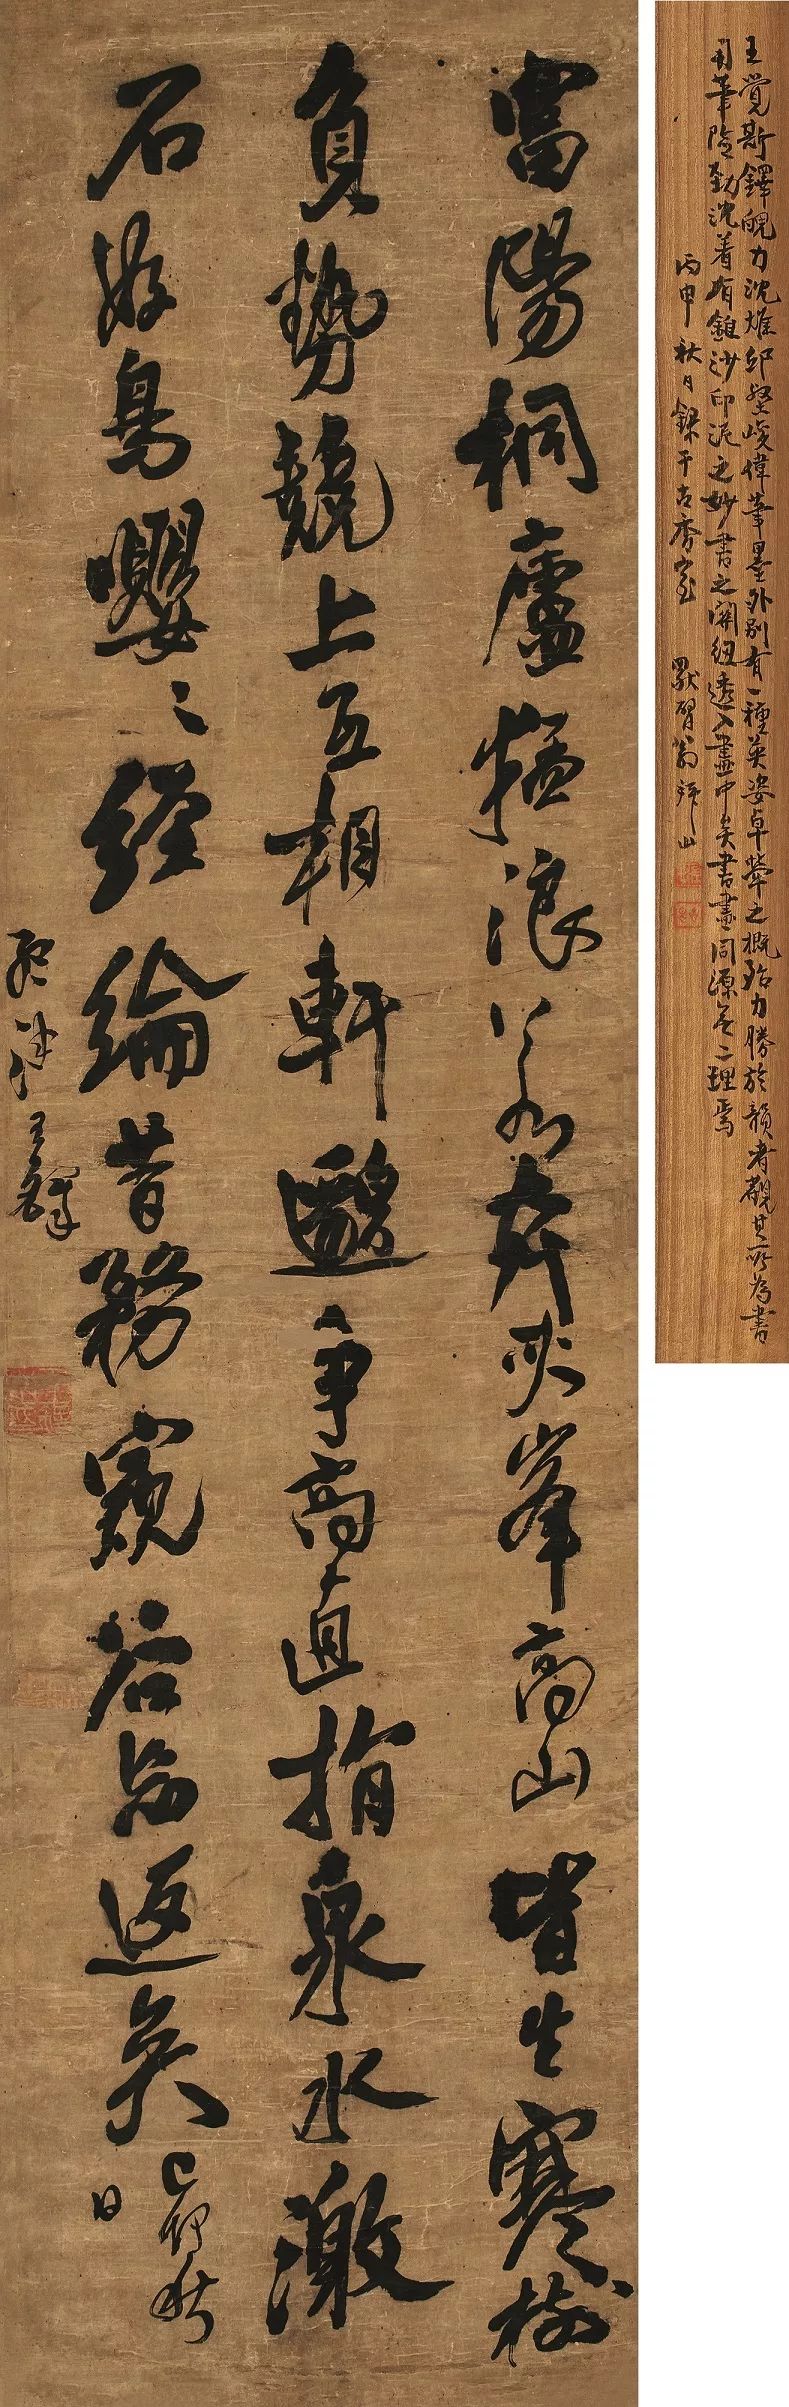 富陽桐廬猛浪以若奔夾峯高山皆生寒樹
負勢競上互相軒邈爭高直指泉水激
石好鳥嚶〻經綸昔務窺谷忘返矣
己卯秋
日
孟津王鐸
王覺斯鐸魄力沈雄邱壑峻偉筆墨外別有一種英姿卓犖之概殆力勝於韻者觀其所為書
用筆險勁沈着有錐沙印泥之妙書之關紐透入畫中矣書畫同源無二理焉
丙申秋日錄于古香室 獸臂翁